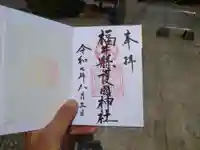 奉拝
福井縣護國神社
令和七年八月三日